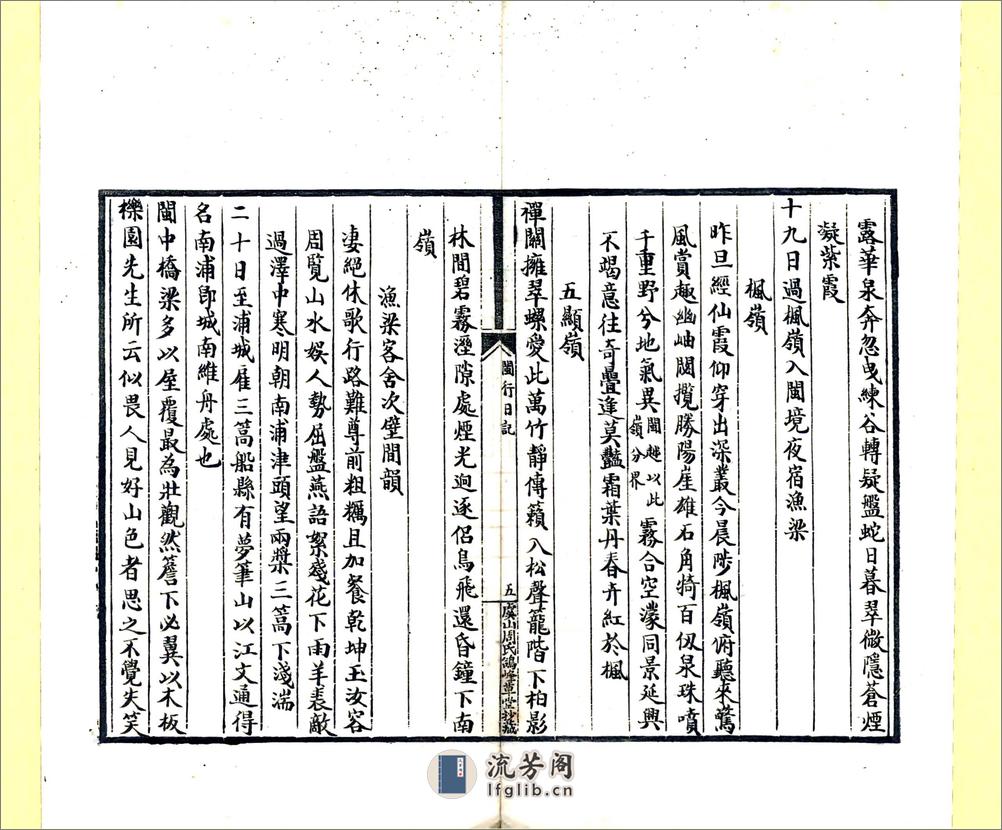 露華泉奔忽曳練谷轉疑盤蛇日暮翠微隱蒼煙
凝紫霞
十九日過楓嶺入閩境夜宿漁梁
楓嶺
昨旦經仙霞仰穿出深叢今晨陟楓嶺俯聽來驚
風賞趣幽岫闢攬勝陽崖雄石角犄百仭泉珠噴
千重野兮地氣異閩越以此嶺分界霧合空濛同景延興
不竭意往奇疊逢莫豔霜葉丹春卉紅於楓
五顯嶺
禪關擁翠螺愛此萬竹靜傳籟入松聲籠階下柏影
林間碧霧溼隙處煙光迥逐侶鳥飛還昏鐘下南
嶺
漁梁客舍次壁間韻
淒絕休歌行路難尊前粗糲且加餐乾坤玉汝容
周覽山水娛人勢屈盤燕語絮殘花下雨羊裘敵
過澤中寒明朝南浦津頭望兩槳三篙下淺湍
二十日至浦城雇三篙船縣有夢筆山以江文通得
名南浦卽城南維舟處也
閩中橋梁多以屋覆最為壯觀然簷下必翼以木板
櫟園先生所云似畏人見好山色者思之不覺失笑
閩行日記
五
虞山周氏鴿峰草堂抄藏
流芳阁
lfglib.cn